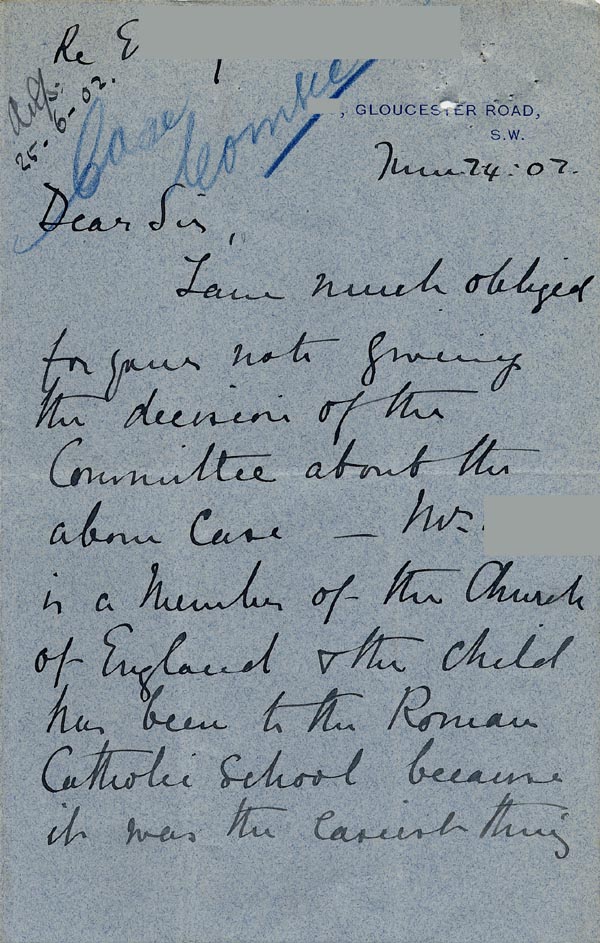 Re E
Case
Combee
25-6-02.
, GLOUCESTER ROAD,
S.W.
June 24: 02.
Dear Sir,
I am much obliged
for your note giving
the decision of the
Committee about the
above Case — Mrs.
is a Member of the Church
of England & the child
has been to the Roman
Catholic School because
it was the easiest thing